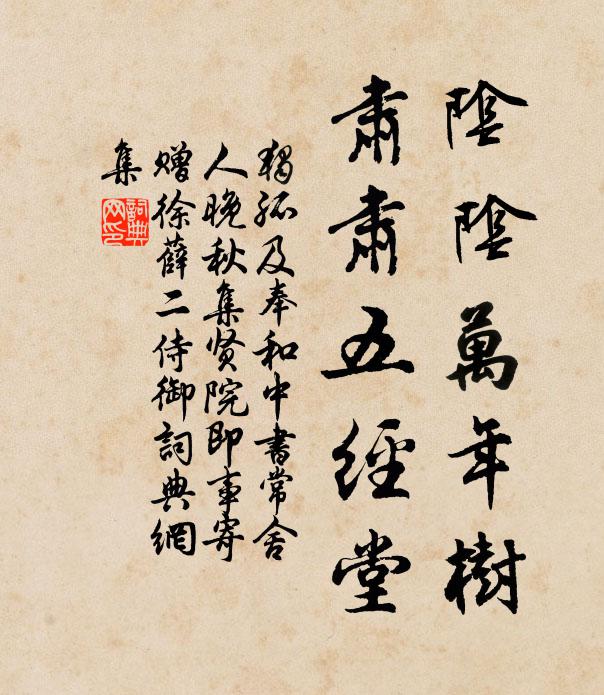 陰陰萬年樹
肅肅五經堂
獨孤及奉和中書常舍
人晚秋集贤院即事寄
赠徐薛二侍御詞典網
集
詞典
网印